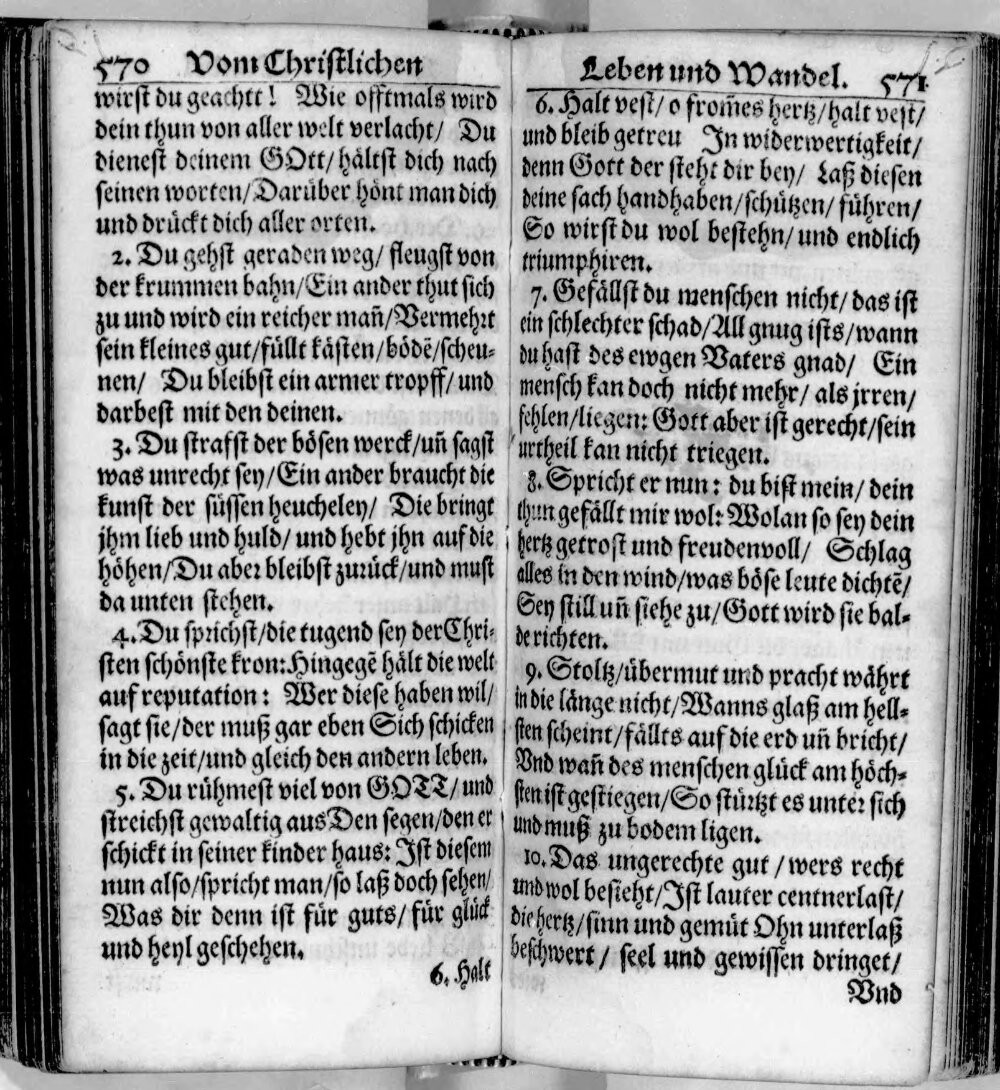 570 Vom Christlichen
wirst du geachtt! Wie offtmals wird
dein thun von aller welt verlacht/ Du
dienest deinem GOtt/hältst dich nach
seinen worten/Darüber hönt man dich
und drückt dich aller orten.
2. Du gehst geraden weg/ fleugst von
der krummen bahn/Ein ander thut sich
zu und wird ein reicher mañ/Vermehrt
sein kleines gut/füllt kästen/bödẽ/scheu-
nen/ Du bleibst ein armer tropff/und
darbest mit den deinen.
3. Du strafst der bösen werck/uñ sagst
was unrecht sey/Ein ander braucht die
kunst der süssen heucheley/ Die bringt
jhm lieb und huld/und hebt jhn auf die
höhen/Du aber bleibst zurück/und must
da unten stehen.
4. Du sprichst/die tugend sey der Chri-
sten schönste kron:Hingegẽ hält die welt
auf reputation: Wer diese haben wil/
sagt sie/der muß gar eben Sich schicken
in die zeit/und gleich den andern leben.
5. Du rühmest viel von GOTT/und
streichst gewaltig aus Den segen/den er
schickt in seiner kinder haus: Ist diesem
nun also/spricht man/so laß doch sehen/
Was dir denn ist für guts/für glück
und heyl geschehen.
6. Halt
Leben und Wandel. 571
6. Halt vest/o from̃es hertz/halt vest/
und bleib getreu In widerwertigkeit/
denn Gott der steht dir bey/ Laß diesen
deine sach handhaben/schützen/führen/
So wirst du wol bestehn/und endlich
triumphiren.
7. Gefällst du menschen nicht/das ist
ein schlechter schad/All gnug ists/wann
du hast des ewgen Vaters gnad/ Ein
mensch kan doch nicht mehr/ als jrren/
fehlen/liegen: Gott aber ist gerecht/sein
urtheil kan nicht triegen.
8. Spricht er nun: du bist mein/dein
thun gefällt mir wol: Wolan so sey dein
hertz getrost und freudenvoll/ Schlag
alles in den wind/was böse leute dichtẽ/
Sey still uñ siehe zu/Gott wird sie bal-
de richten.
9. Stoltz/übermut und pracht währt
in die länge nicht/Wanns glaß am hell-
sten scheint/fällts auf die erd uñ bricht/
Vnd wañ des menschen glück am höch-
sten ist gestiegen/So stürtzt es unter sich
und muß zu bodem ligen.
10. Das ungerechte gut/wers recht
und wol besieht/Ist lauter centnerlast/
die hertz/sinn und gemüt Ohn unterlaß
beschwert/ seel und gewissen dringet/
Vnd